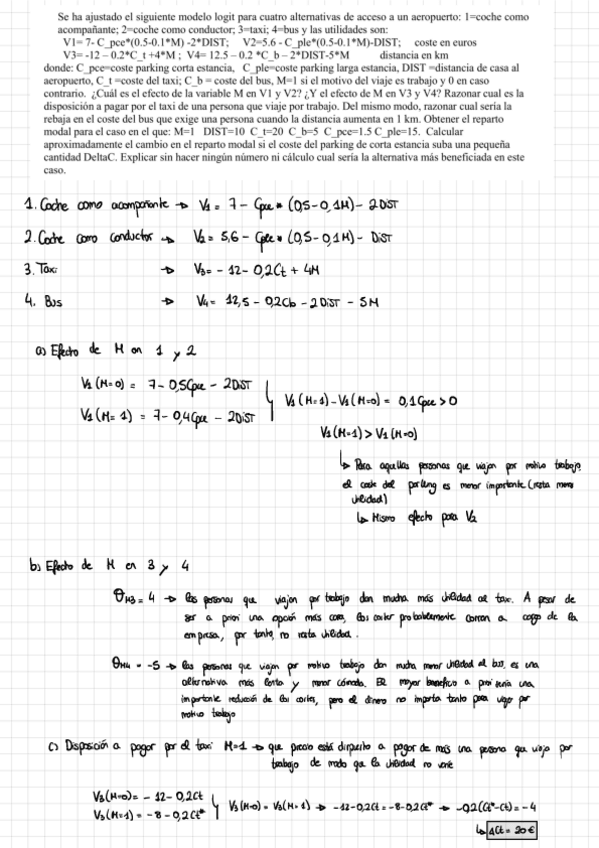 Se ha ajustado el siguiente modelo logit para cuatro alternativas de acceso a un aeropuerto: 1=coche como
acompañante; 2=coche como conductor; 3=taxi; 4=bus y las utilidades son:
V1= 7- C_pce*(0.5-0.1*M) -2*DIST; V2=5.6 - C_ple*(0.5-0.1*M)-DIST; coste en euros
V3= -12 – 0.2*C_t +4*M ; V4= 12.5 – 0.2 *C_b – 2*DIST-5*M distancia en km
donde: C_pce=coste parking corta estancia, C_ple=coste parking larga estancia, DIST =distancia de casa al
aeropuerto, C_t =coste del taxi; C_b = coste del bus, M=1 si el motivo del viaje es trabajo y 0 en caso
contrario. ¿Cuál es el efecto de la variable M en V1 y V2? ¿Y el efecto de M en V3 y V4? Razonar cual es la
disposición a pagar por el taxi de una persona que viaje por trabajo. Del mismo modo, razonar cual sería la
rebaja en el coste del bus que exige una persona cuando la distancia aumenta en 1 km. Obtener el reparto
modal para el caso en el que: M=1 DIST=10 C_t=20 C_b=5 C_pce=1.5 C_ple=15. Calcular
aproximadamente el cambio en el reparto modal si el coste del parking de corta estancia suba una pequeña
cantidad DeltaC. Explicar sin hacer ningún número ni cálculo cual sería la alternativa más beneficiada en este
caso.
1. Coche como acompañante → V1 = 7 - Cpce * (0,5 - 0,1M) - 2DIST
2. Coche como conductor → V2 = 5,6 - Cple * (0,5 - 0,1M) - DIST
3. Taxi → V3 = -12 - 0,2Ct + 4M
4. Bus → V4 = 12,5 - 0,2Cb - 2DIST - 5M
a) Efecto de M en 1 y 2
V1 (M=0) = 7 - 0,5Cpce - 2DIST
V1 (M=1) = 7 - 0,4Cpce - 2DIST
V1 (M=1) - V1 (M=0) = 0,1Cpce > 0
V1 (M=1) > V1 (M=0)
↳ Para aquellas personas que viajan por motivo trabajo,
el coste del parking es menor importante (resta menos
utilidad)
↳ Mismo efecto para V2
b) Efecto de M en 3 y 4
θM3 = 4 → las personas que viajan por trabajo dan mucha más utilidad al taxi. A pesar de
ser a priori una opción más cara, los costes probablemente corran a cargo de la
empresa, por tanto, no resta utilidad.
θM4 = -5 → las personas que viajan por motivo trabajo dan mucha menor utilidad al bus, es una
alternativa más lenta y menos cómoda. El mayor beneficio a priori sería una
importante reducción de los costes, pero el dinero no importa tanto para viajes por
motivo trabajo
c) Disposición a pagar por el taxi M=1 → que precio está dispuesto a pagar de más una persona que viaja por
trabajo de modo que la utilidad no varíe
V3(M=0) = -12 - 0,2Ct
V3(M=1) = -8 - 0,2Ct*
V3(M=0) = V3(M=1) → -12 - 0,2Ct = -8 - 0,2Ct* → -0,2(Ct* - Ct) = -4
↳ ΔCt = 20€